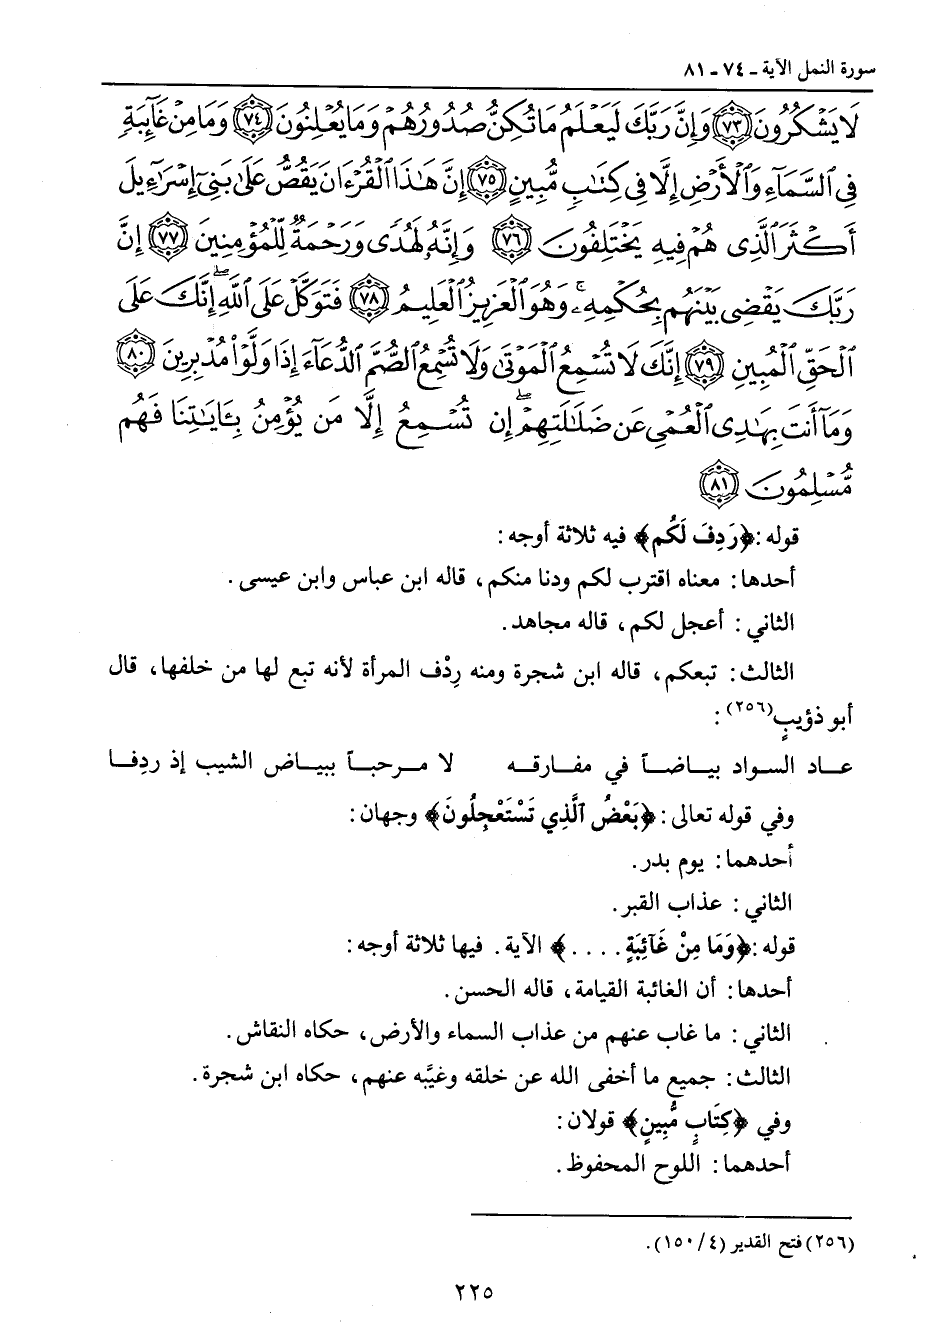 سورة النمل الآية ـ ٧٤ ـ ٨١
لَا يَشْكُرُونَ ٧٣ وَإِنَّ رَبَّكَ لَيَعْلَمُ مَا تُكِنُّ صُدُورُهُمْ وَمَا يُعْلِنُونَ ٧٤ وَمَا مِنْ غَآئِبَةٍ
فِى ٱلسَّمَآءِ وَٱلْأَرْضِ إِلَّا فِى كِتَٰبٍ مُّبِينٍ ٧٥ إِنَّ هَٰذَا ٱلْقُرْءَانَ يَقُصُّ عَلَىٰ بَنِىٓ إِسْرَٰٓءِيلَ
أَكْثَرَ ٱلَّذِى هُمْ فِيهِ يَخْتَلِفُونَ ٧٦ وَإِنَّهُۥ لَهُدًى وَرَحْمَةٌ لِّلْمُؤْمِنِينَ ٧٧ إِنَّ
رَبَّكَ يَقْضِى بَيْنَهُم بِحُكْمِهِۦ ۚ وَهُوَ ٱلْعَزِيزُ ٱلْعَلِيمُ ٧٨ فَتَوَكَّلْ عَلَى ٱللَّهِ ۖ إِنَّكَ عَلَى
ٱلْحَقِّ ٱلْمُبِينِ ٧٩ إِنَّكَ لَا تُسْمِعُ ٱلْمَوْتَىٰ وَلَا تُسْمِعُ ٱلصُّمَّ ٱلدُّعَآءَ إِذَا وَلَّوْا۟ مُدْبِرِينَ ٨٠
وَمَآ أَنتَ بِهَٰدِى ٱلْعُمْىِ عَن ضَلَٰلَتِهِمْ ۖ إِن تُسْمِعُ إِلَّا مَن يُؤْمِنُ بِـَٔايَٰتِنَا فَهُم
مُّسْلِمُونَ ٨١
قوله: ﴿رَدِفَ لَكُم﴾ فيه ثلاثة أوجه:
أحدها: معناه اقترب لكم ودنا منكم، قاله ابن عباس وابن عيسى.
الثاني: أعجل لكم، قاله مجاهد.
الثالث: تبعكم، قاله ابن شجرة ومنه رِدْف المرأة لأنه تبع لها من خلفها، قال
أبو ذؤيبٍ(٢٥٦):
عـاد السـواد بيـاضـاً في مفـارقـه لا مـرحبـاً ببيـاض الشيب إذ ردِفـا
وفي قوله تعالى: ﴿بَعْضُ ٱلَّذِي تَسْتَعْجِلُونَ﴾ وجهان:
أحدهما: يوم بدر.
الثاني: عذاب القبر.
قوله: ﴿وَمَا مِنْ غَآئِبَةٍ ....﴾ الآية. فيها ثلاثة أوجه:
أحدها: أن الغائبة القيامة، قاله الحسن.
الثاني: ما غاب عنهم من عذاب السماء والأرض، حكاه النقاش.
الثالث: جميع ما أخفى الله عن خلقه وغيَّبه عنهم، حكاه ابن شجرة.
وفي ﴿كِتَابٍ مُّبِينٍ﴾ قولان:
أحدهما: اللوح المحفوظ.
(٢٥٦) فتح القدير (٤/١٥٠).
٢٢٥